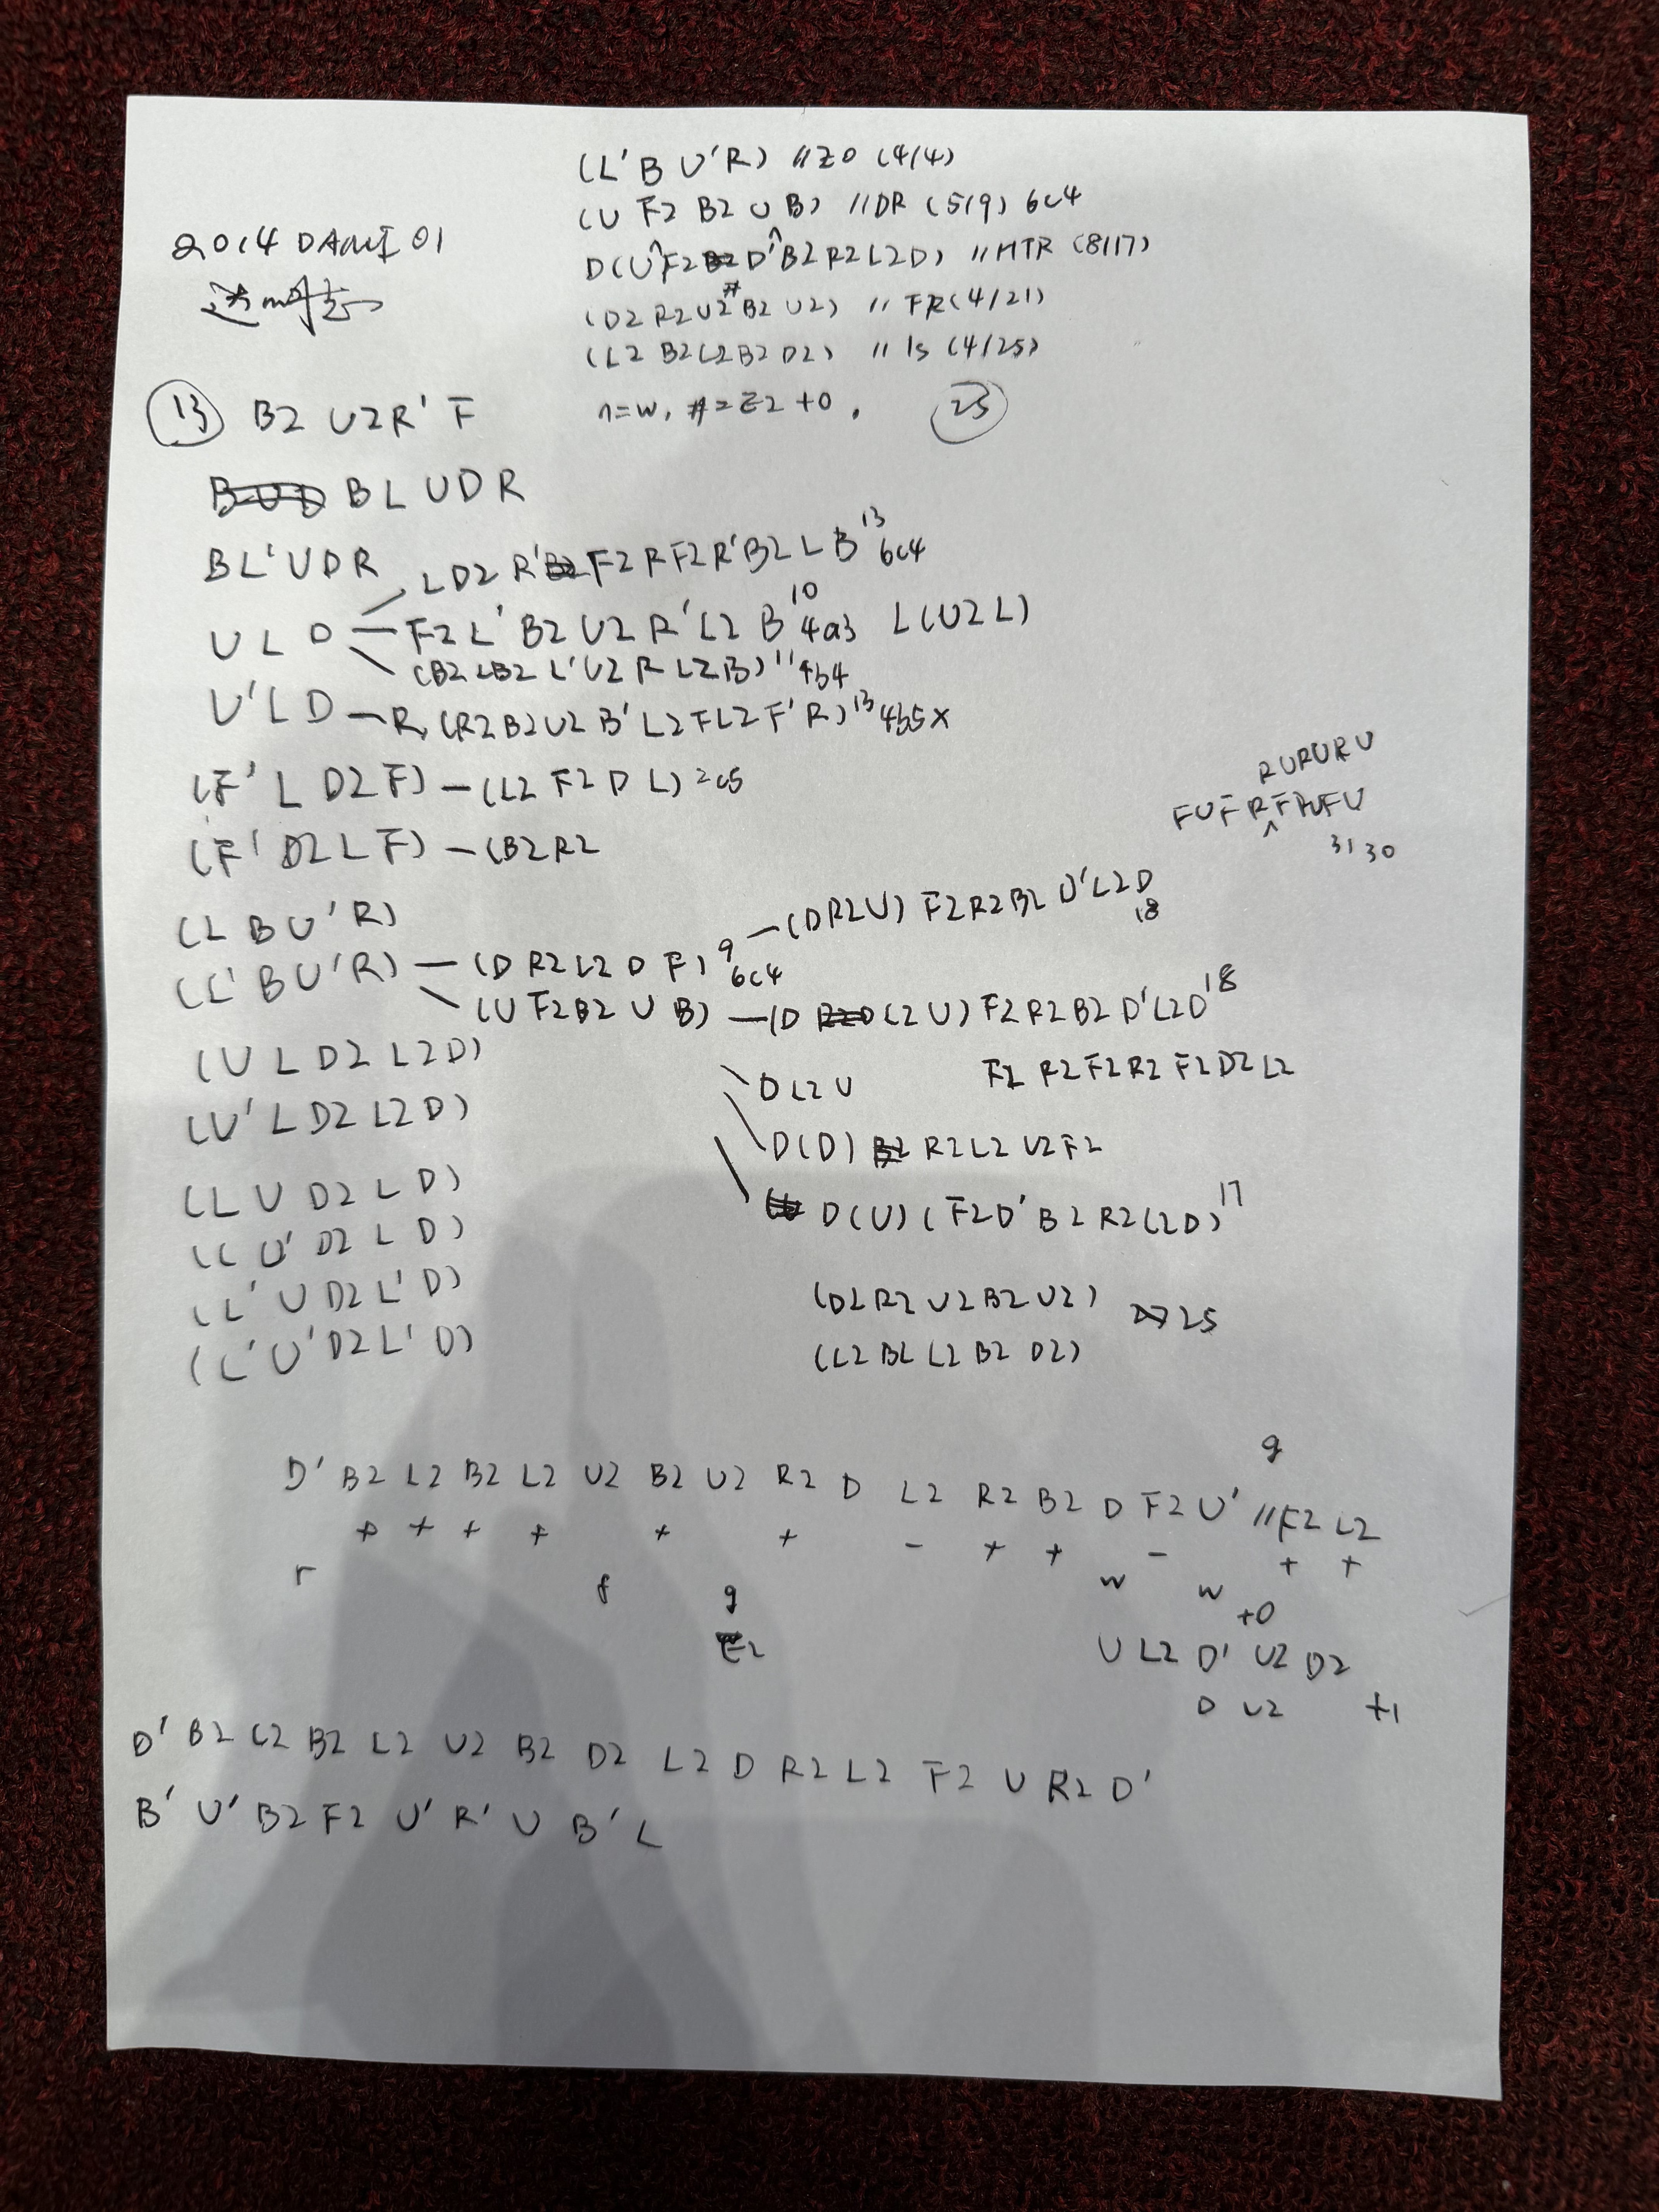 (L'BU'R) //EO (4/4)
(U F2 B2 U B) //DR (5/9) 6c4
D(U^F2 D'^B2 R2 L2 D) //HTR (8/17)
(D2 R2 U2 # B2 U2) // FR (4/21)
(L2 B2 L2 B2 D2) // ls (4/25)
^=w, #=E2 +0. 25
2014 DAMI 01
13 B2 U2 R' F
BL UDR
BL'UDR
LD2 R' F2 R F2 R' B2 L B 13 6c4
ULD F2 L' B2 U2 R' L2 B 10 4a3 L(U2 L)
(B2 L B2 L' U2 R L2 B) 11 4b4
U'LD — R (R2 B2 U2 B' L2 F L2 F' R) 13 4b5 x
(F' L D2 F) — (L2 F2 D L) 2c5
RURURU
FUFR^FRUFU
31 30
(F' D2 L F) — (B2 R2
(L B U' R)
(L' B U' R) — (D R2 L2 D F) 9 6c4 — (D R2 U) F2 R2 B2 U' L2 D 18
(U F2 B2 U B) — (D L2 U) F2 R2 B2 D' L2 D 18
(U L D2 L2 D)
D L2 U F2 R2 F2 R2 F2 D2 L2
(U' L D2 L2 D)
D(D) R2 L2 U2 F2
(L U D2 L D)
D(U) (F2 D' B2 R2 L2 D) 17
(L U' D2 L D)
(L' U D2 L' D)
(D2 R2 U2 B2 U2) 25
(L' U' D2 L' D)
(L2 B2 L2 B2 D2)
g
D' B2 L2 B2 L2 U2 B2 U2 R2 D L2 R2 B2 D F2 U' // F2 L2
+ + + + + + - + + - + +
r f g w w +0
E2 U L2 D' U2 D2
D U2 +1
D' B2 L2 B2 L2 U2 B2 D2 L2 D R2 L2 F2 U R2 D'
B' U' B2 F2 U' R' U B' L